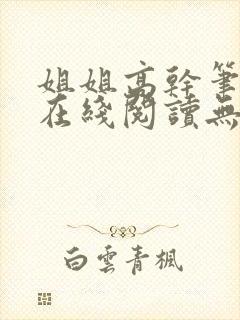 姐姐高幹筆
在綫閱讀無
白雲青楓